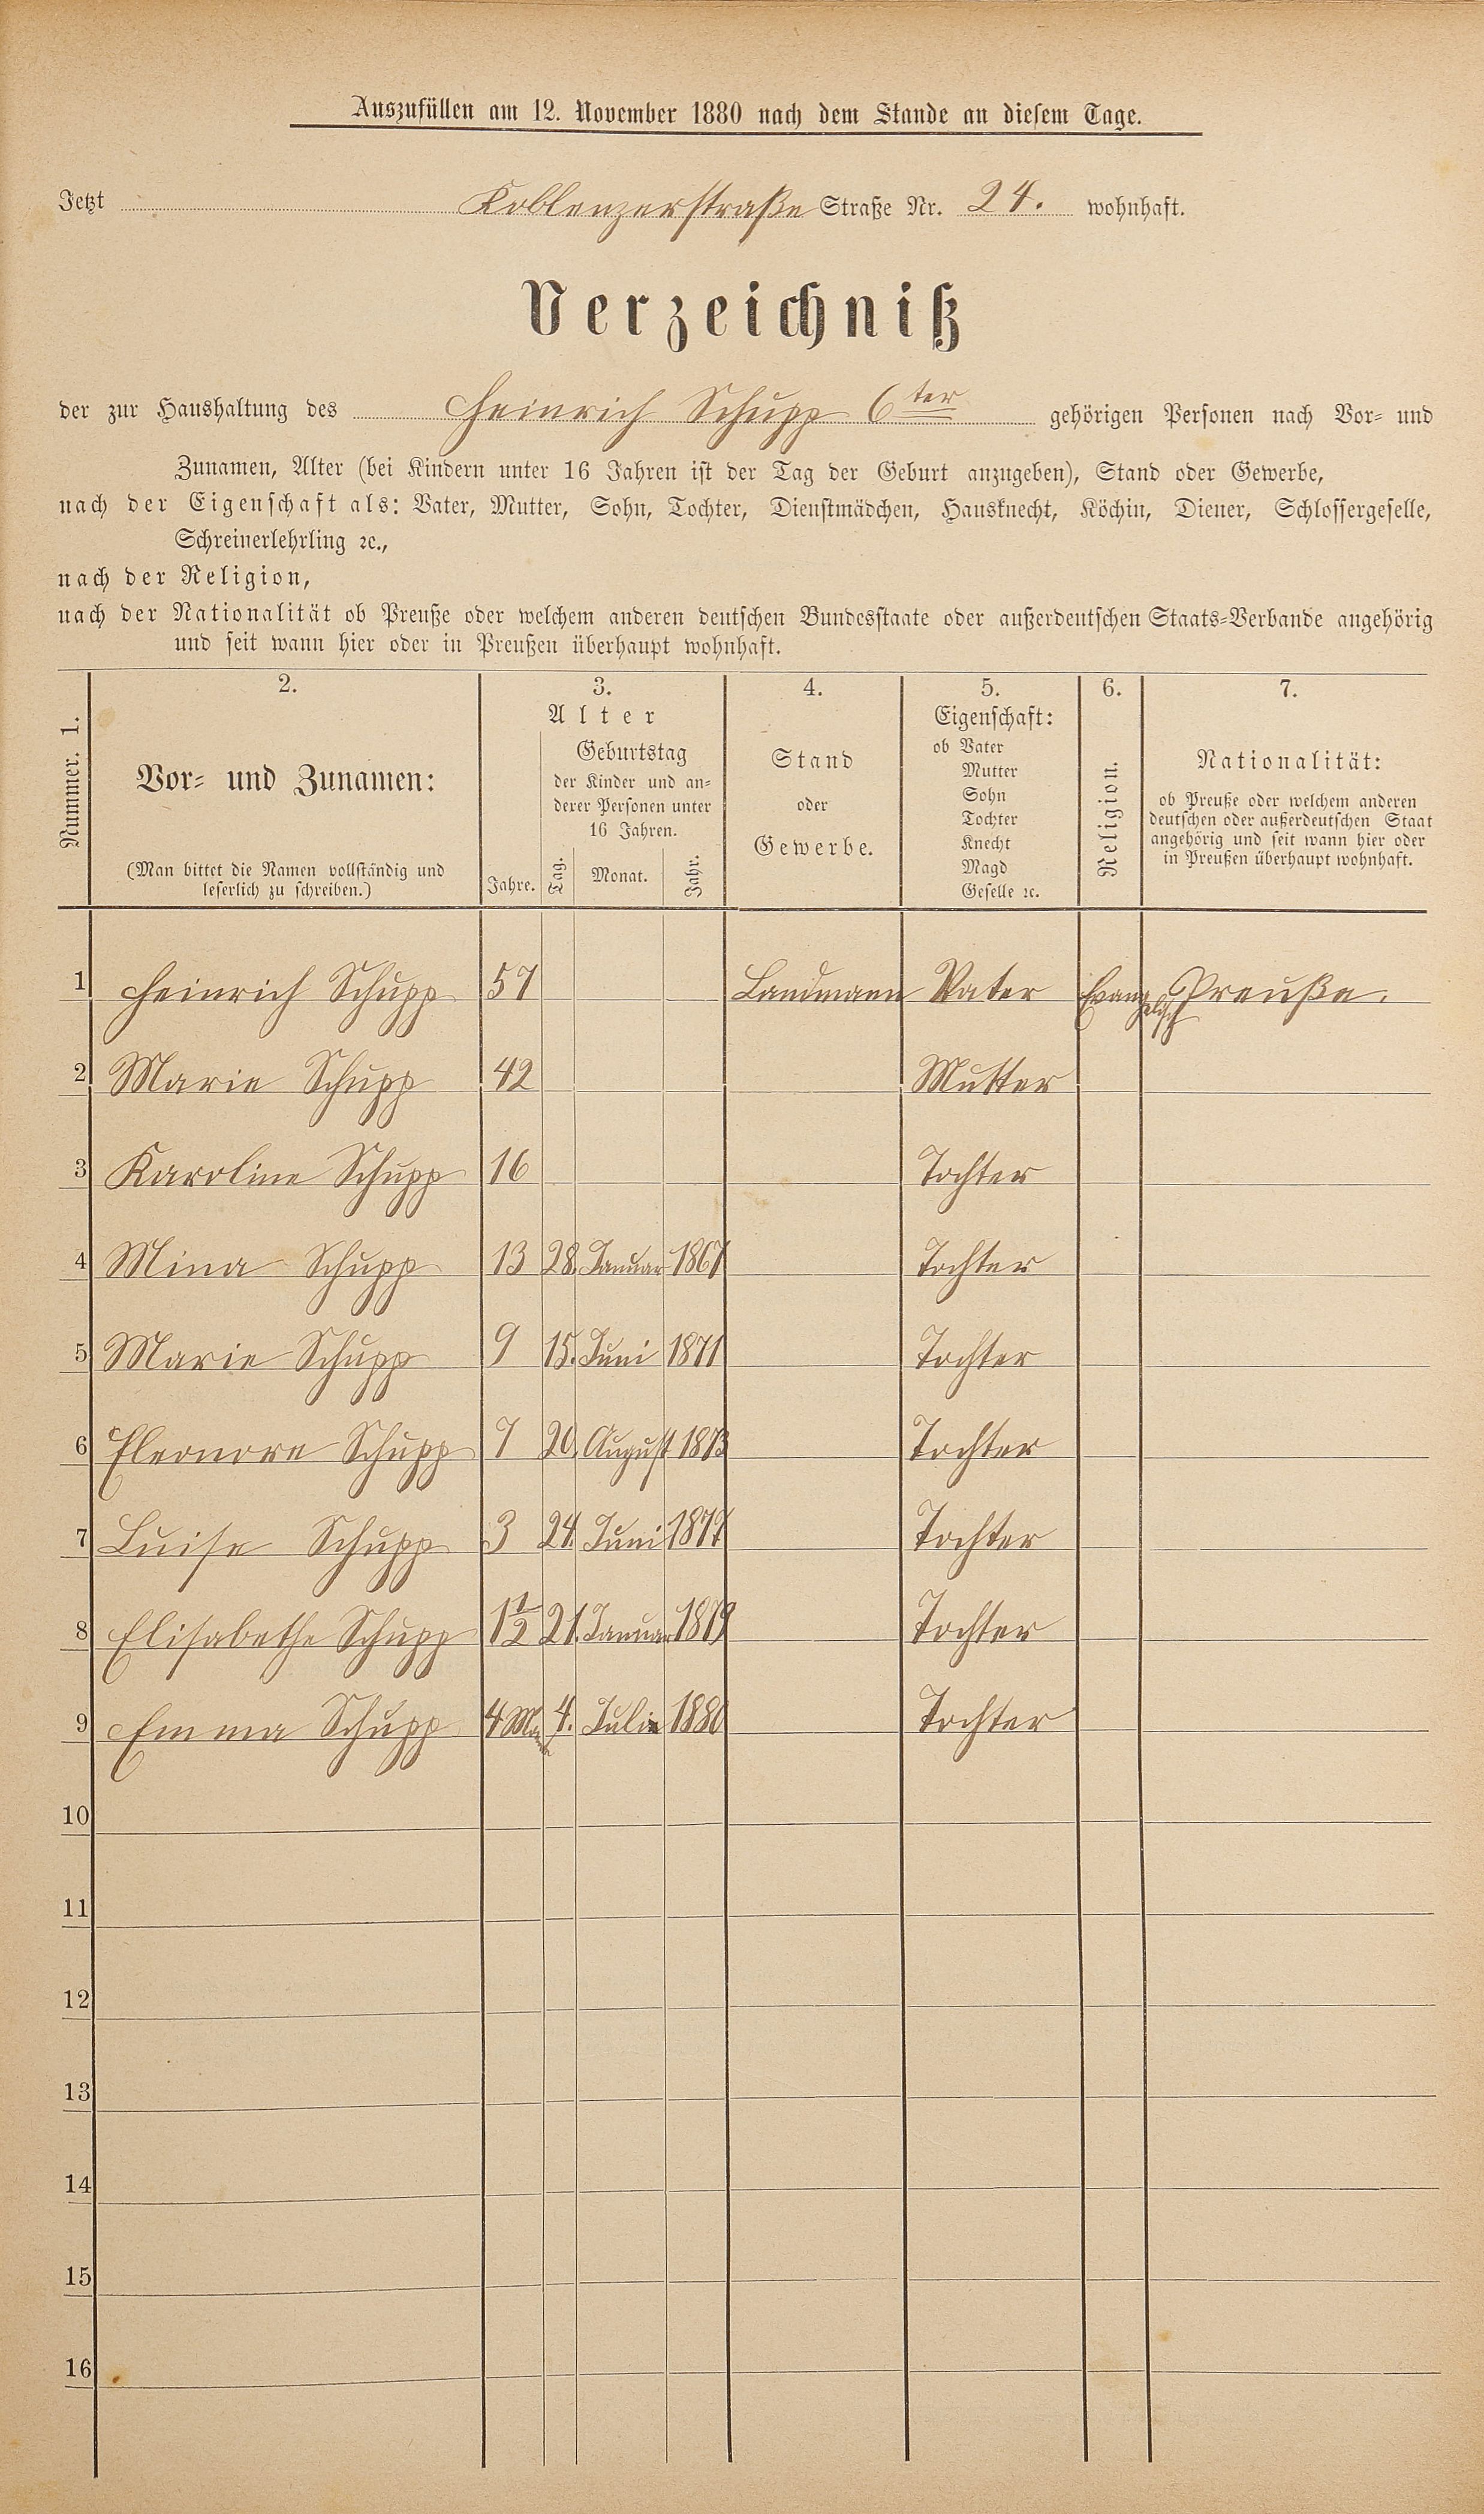 Auszufüllen am 12. November 1880 nach dem Stande an diesem Tage.
Jetzt Koblenzerstraße Straße Nr. 24. wohnhaft.
Verzeichniß
der zur Haushaltung des Heinrich Schupp 6ter gehörigen Personen nach Vor- und
Zunamen, Alter (bei Kindern unter 16 Jahren ist der Tag der Geburt anzugeben), Stand oder Gewerbe,
nach der Eigenschaft als: Vater, Mutter, Sohn, Tochter, Dienstmädchen, Hausknecht, Köchin, Diener, Schlossergeselle,
Schreinerlehrling ꝛc.,
nach der Religion,
nach der Nationalität ob Preuße oder welchem anderen deutschen Bundesstaate oder außerdeutschen Staats-Verbande angehörig
und seit wann hier oder in Preußen überhaupt wohnhaft.
Nummer. 1.
2.
Vor- und Zunamen:
(Man bittet die Namen vollständig und
leserlich zu schreiben.)
3.
Alter
Jahre.
Geburtstag
der Kinder und an-
derer Personen unter
16 Jahren.
Tag. Monat. Jahr.
4.
Stand
oder
Gewerbe.
5.
Eigenschaft:
ob Vater
Mutter
Sohn
Tochter
Knecht
Magd
Geselle ꝛc.
6.
Religion.
7.
Nationalität:
ob Preuße oder welchem anderen
deutschen oder außerdeutschen Staat
angehörig und seit wann hier oder
in Preußen überhaupt wohnhaft.
1 Heinrich Schupp 57 Landmann Vater Evangelisch Preuße.
2 Marie Schupp 42 Mutter
3 Karoline Schupp 16 Tochter
4 Mina Schupp 13 28. Januar 1867 Tochter
5 Marie Schupp 9 15. Juni 1871 Tochter
6 Eleonore Schupp 7 20. August 1873 Tochter
7 Luise Schupp 3 24. Juni 1877 Tochter
8 Elisabethe Schupp 1½ 21. Januar 1879 Tochter
9 Emma Schupp 4 4. Juli 1880 Tochter
10
11
12
13
14
15
16